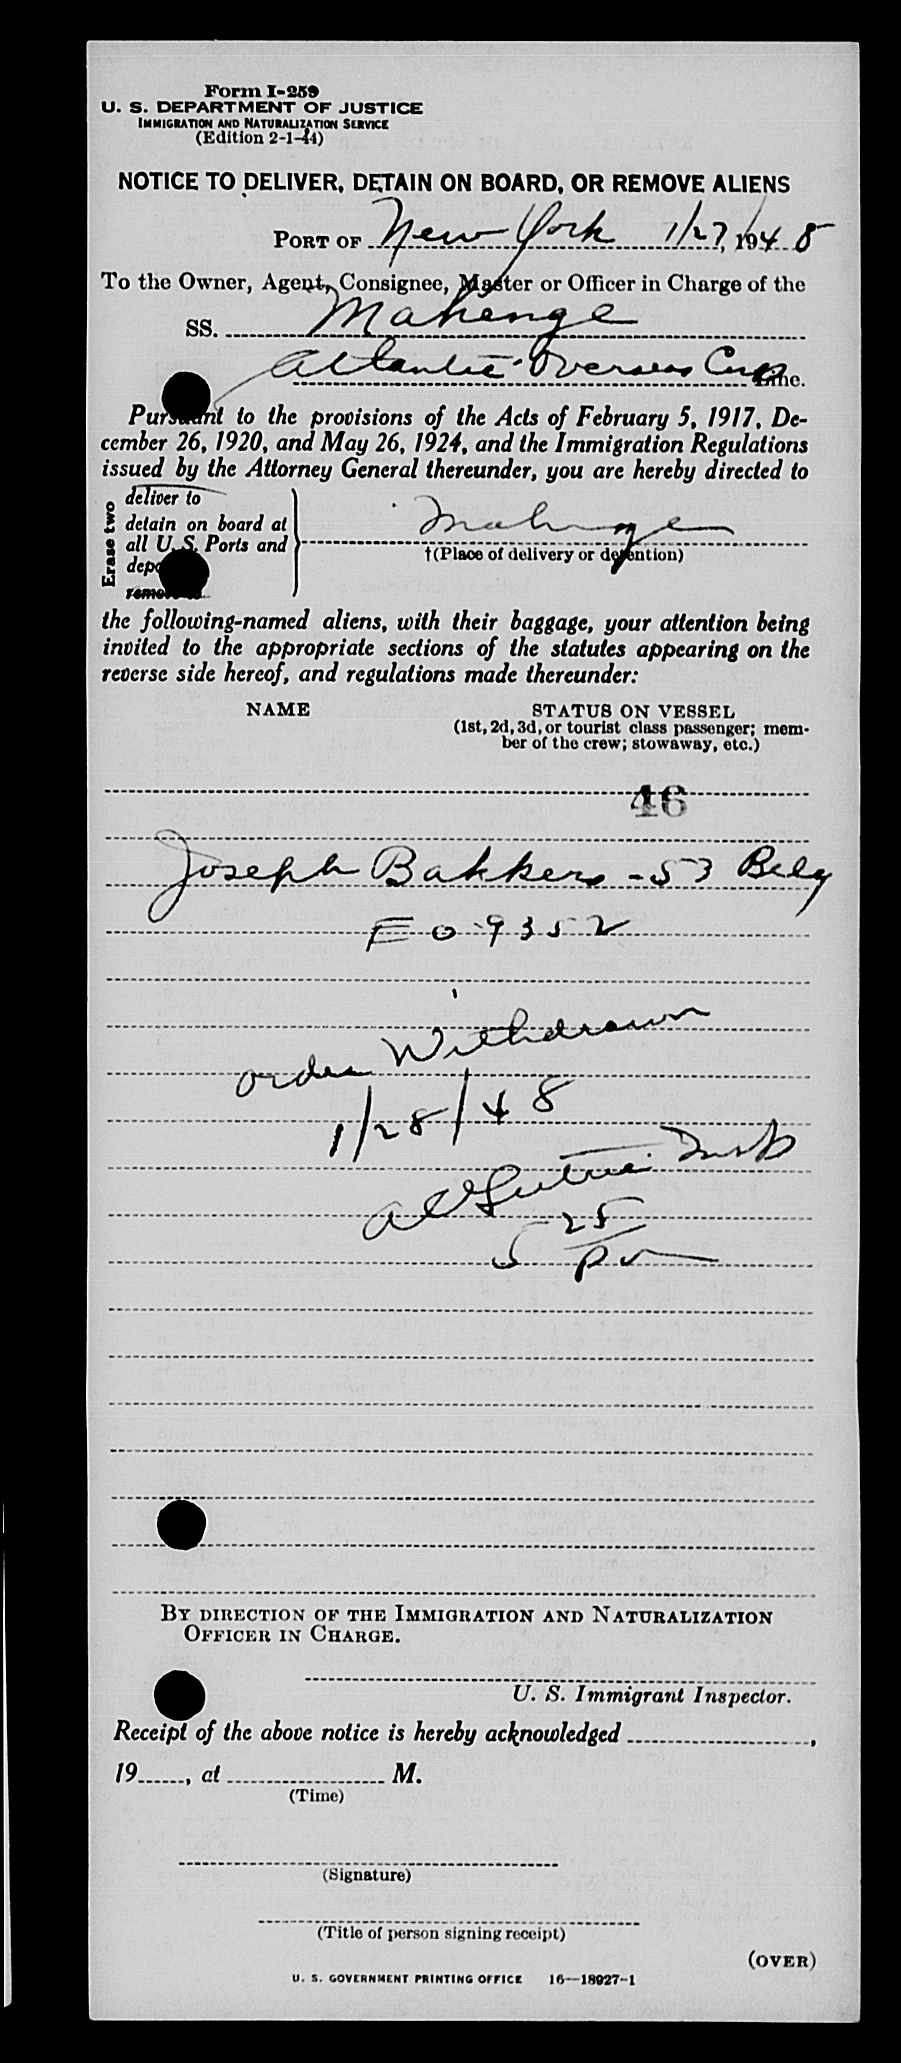 Form I-259
U. S. DEPARTMENT OF JUSTICE
IMMIGRATION AND NATURALIZATION SERVICE
(Edition 2-1-44)
NOTICE TO DELIVER, DETAIN ON BOARD, OR REMOVE ALIENS
PORT OF New York 1/27, 1948
To the Owner, Agent, Consignee, Master or Officer in Charge of the
SS. Mahenge
Atlantic Overseas Corp Line.
Pursuant to the provisions of the Acts of February 5, 1917, De-
cember 26, 1920, and May 26, 1924, and the Immigration Regulations
issued by the Attorney General thereunder, you are hereby directed to
Erase two
deliver to
detain on board at
all U. S. Ports and
remove to
Mahenge
†(Place of delivery or detention)
the following-named aliens, with their baggage, your attention being
invited to the appropriate sections of the statutes appearing on the
reverse side hereof, and regulations made thereunder:
NAME
STATUS ON VESSEL
(1st, 2d, 3d, or tourist class passenger; mem-
ber of the crew; stowaway, etc.)
46
Joseph Bakkers - 53 Belg
E 09352
order Withdrawn
1/28/48
5 25
pm
BY DIRECTION OF THE IMMIGRATION AND NATURALIZATION
OFFICER IN CHARGE.
U. S. Immigrant Inspector.
Receipt of the above notice is hereby acknowledged ,
19 , at M.
(Time)
(Signature)
(Title of person signing receipt)
(OVER)
U. S. GOVERNMENT PRINTING OFFICE 16—18927-1